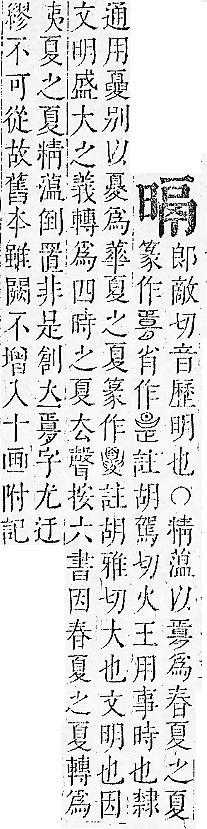 㬏
郎敵切音歷明也○精薀以爲春夏之夏
篆作肖作註胡駕切火王用事時也隸
通用别以爲華夏之夏篆作註胡雅切大也文明也因
文明盛大之義轉爲四時之夏厺聲按六書因春夏之夏轉爲
夷夏之夏精薀倒置非是創字尤迂
繆不可從故舊本雖闕不增入十画附記